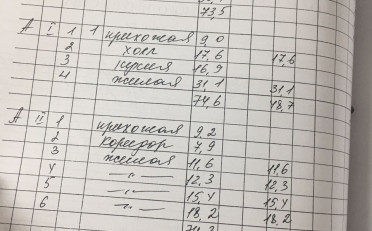 73,5
А I 1 1 прихожая 9,0
2 холл 17,6 17,6
3 кухня 16,9
4 жилая 31,1 31,1
74,6 48,7
А II 1 прихожая 9,2
2 коридор 7,9
3 жилая 11,6 11,6
4 —"— 12,3 12,3
5 —"— 15,4 15,4
6 —"— 18,2 18,2